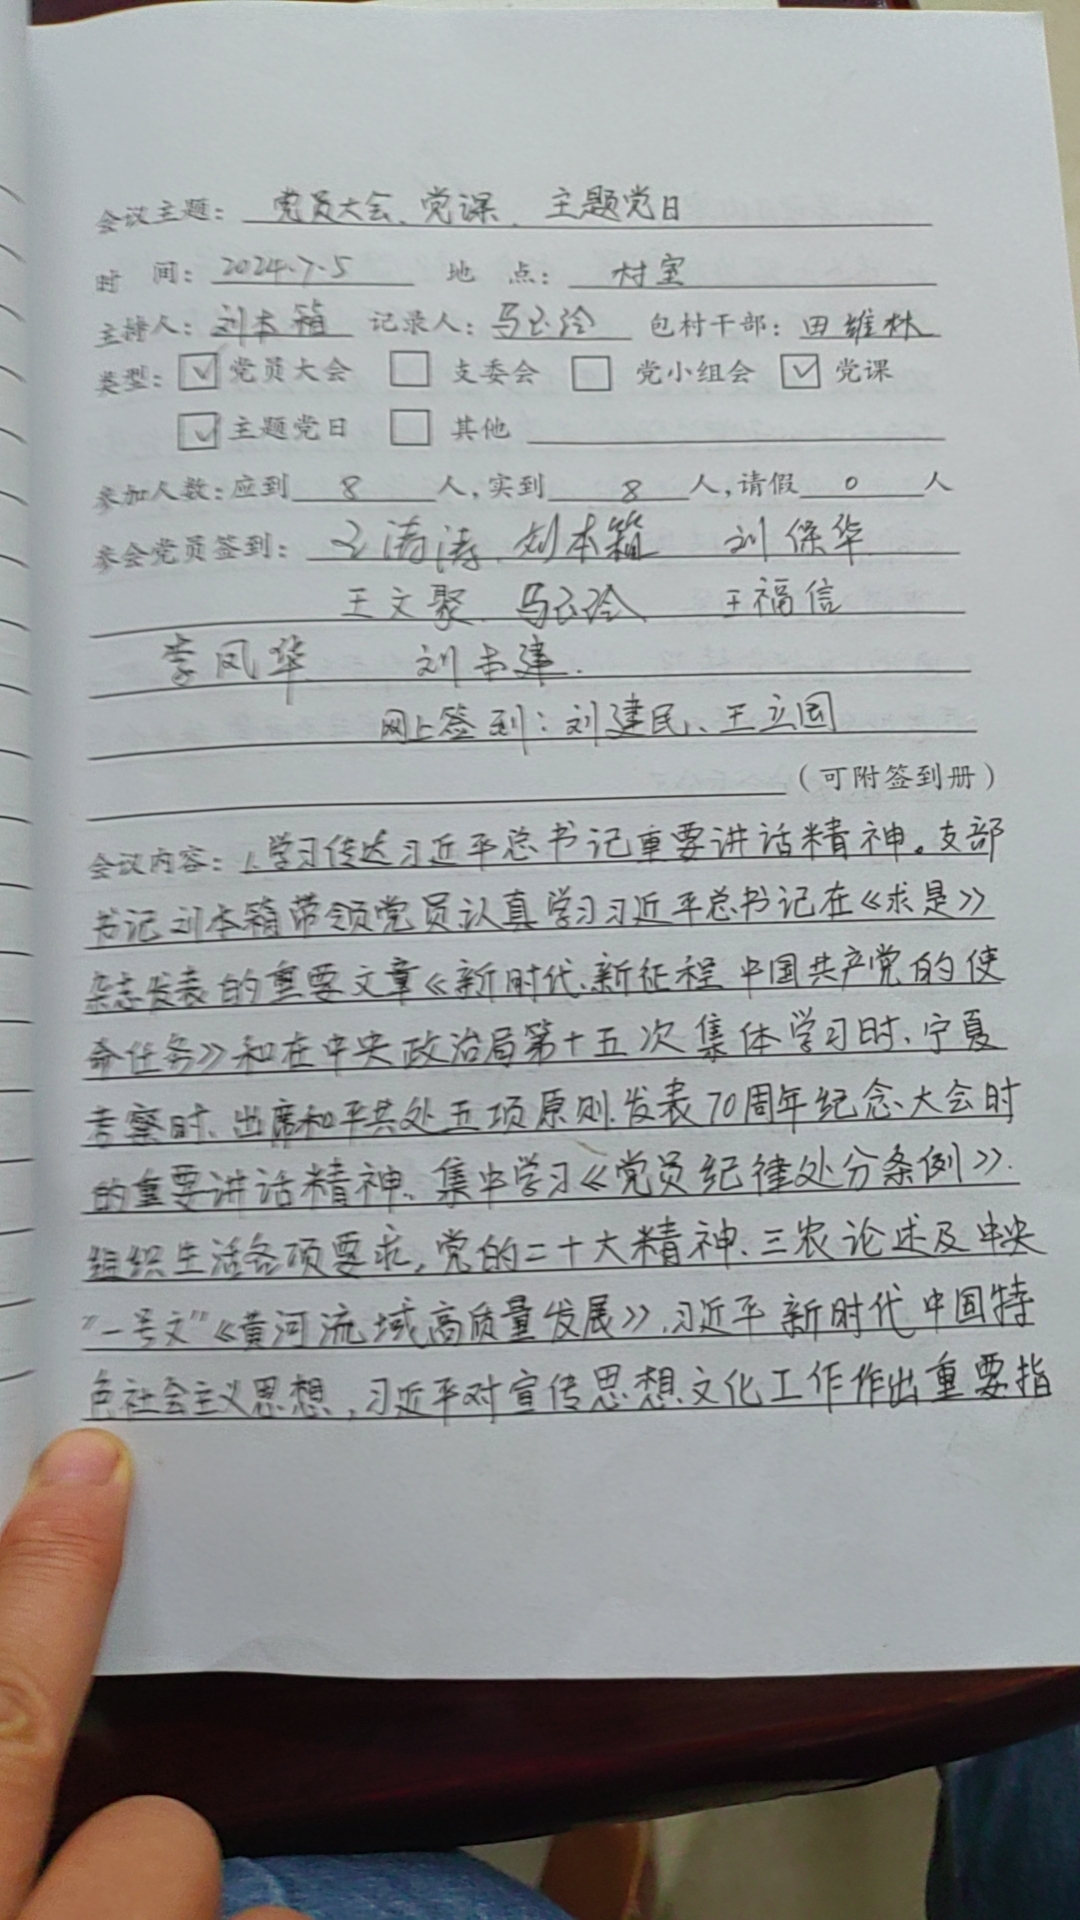 会议主题：党员大会、党课、主题党日
时 间：2024.7.5 地 点：村室
主持人：刘本箱 记录人：马玉玲 包村干部：田维林
类型：☑党员大会 □支委会 □党小组会 ☑党课
☑主题党日 □其他
参加人数：应到8人，实到8人，请假0人
参会党员签到：王涛涛、刘本箱 刘保华
王文聚、马玉玲 王福信
李凤华 刘本建.
网上签到：刘建民、王立国
（可附签到册）
会议内容：1.学习传达习近平总书记重要讲话精神。支部
书记刘本箱带领党员认真学习习近平总书记在《求是》
杂志发表的重要文章《新时代、新征程中国共产党的使
命任务》和在中央政治局第十五次集体学习时、宁夏
考察时、出席和平共处五项原则发表70周年纪念大会时
的重要讲话精神、集中学习《党员纪律处分条例》.
组织生活各项要求，党的二十大精神、三农论述及中央
"一号文"《黄河流域高质量发展》、习近平新时代中国特
色社会主义思想，习近平对宣传思想文化工作作出重要指